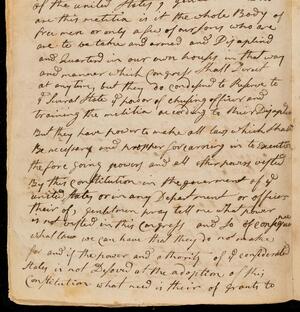 of the united States,
are this melitia is it the whole Body of
free men or only a few of our sons who are
are to be taken and armed and Disaplind
and Quarterd in our own houses in that way
and manner which Congress Shall Derect
at any time, but they do condesend to Reserve to
ye Sevral State ye power of chusing officer and
training the melitia according to their Disapline
But they have power to make all laws which Shall
Be necessary and propper for carring in to Execution
the fore going powers and all other powers vested
By this constitution in the goverment of ye
united States or in any Department or officer
their of, gentelmen pray tell me what power
is not vested in this Congress and So of consequence
what law we can have that they do not make
for and if the power and authority of ye confederate
States is not Desolved at the adoption of this
Constitution what need is their of Grants to